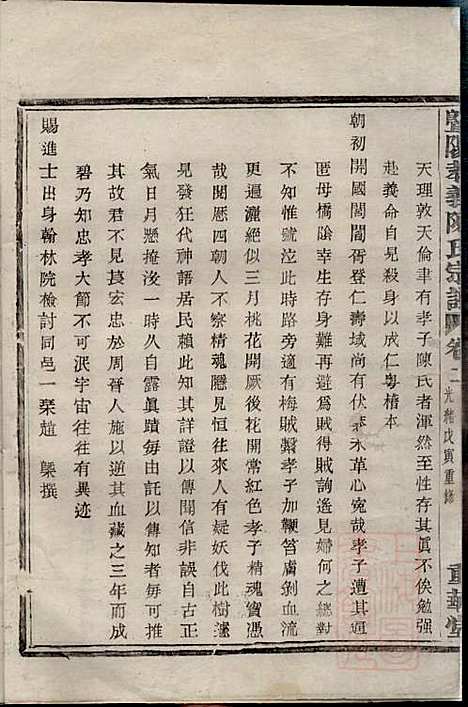 暨陽孝義陳氏宗譜 卷二 光緒戊寅重修 重華堂
天理敦天倫聿有孝子陳氏者渾然至性存其眞不俟勉強
赴義命自見殺以成仁粵稽本
朝初開國閭閻胥登仁壽域尚有伏 未革心寃哉孝子遭其逼
匿母橋陰幸生存萬難再避爲賊得賊詢遙見婦何之總對
不知惟號泣此時路旁適有梅賊繫孝子加鞭笞膚剝血流
更遍灑絕似三月桃花開厥後花開常紅色孝子精魂實憑
哉閱厯四朝人不察精魂隱見恒往來人有疑妖伐此樹遽
見發狂代神語居民賴此知其詳證以傳聞信非誤自古正
氣日月懸掩没一時久自露眞蹟每由託以傳知者每可推
其故君不見萇宏忠於周晉人施以逆其血藏之三年而成
碧乃知忠孝大節不可泯宇宙往往有異迹
賜進士出身翰林院檢討同邑一桒趙 榘撰